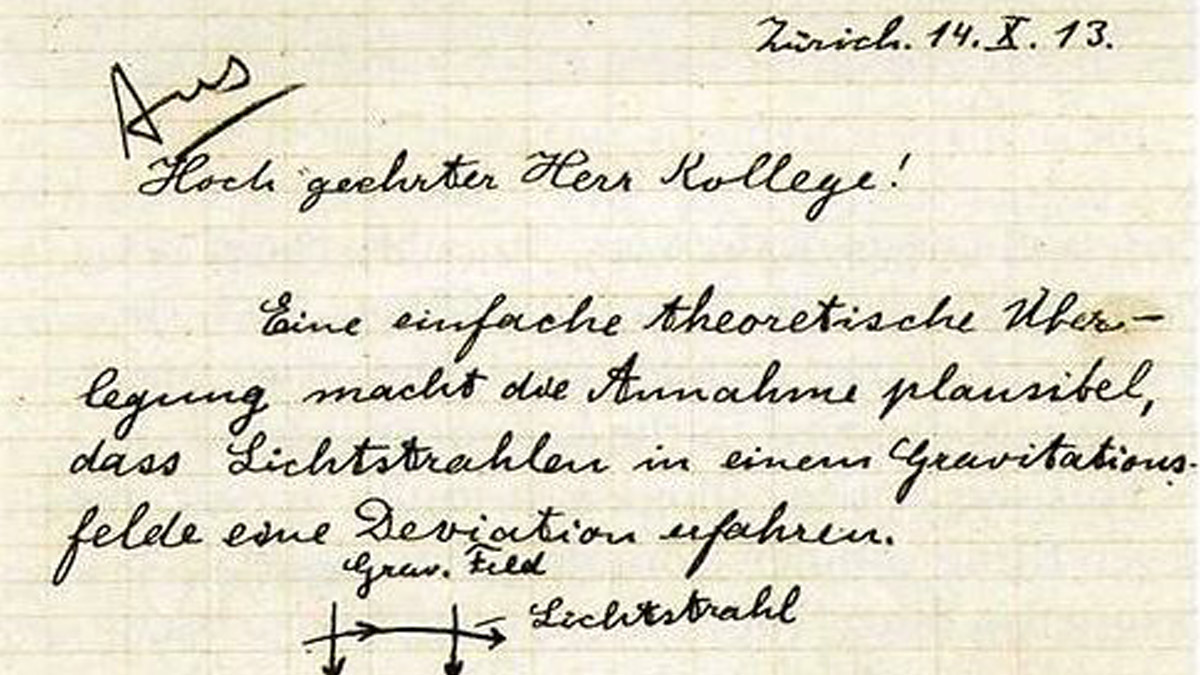 Zürich. 14. X. 13.
Ans
Hoch geehrter Herr Kollege!
Eine einfache theoretische Über-
legung macht die Annahme plausibel,
dass Lichtstrahlen in einem Gravitations-
felde eine Deviation erfahren.
Grav. Feld
Lichtstrahl